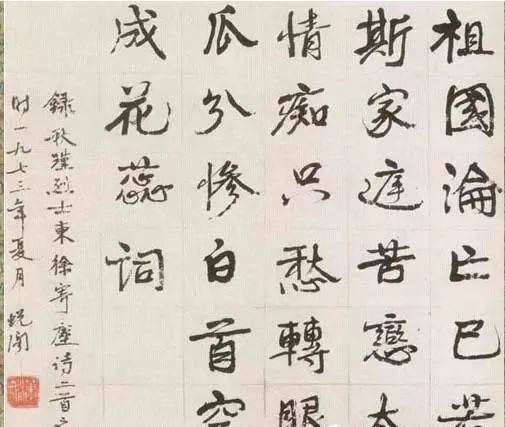 祖國淪亡已若
斯家庭苦戀太
情痴只愁轉眼
瓜分慘白首空
成花蕊詞
錄秋瑾烈士柬徐寄塵诗二首之
时一九七三年夏月